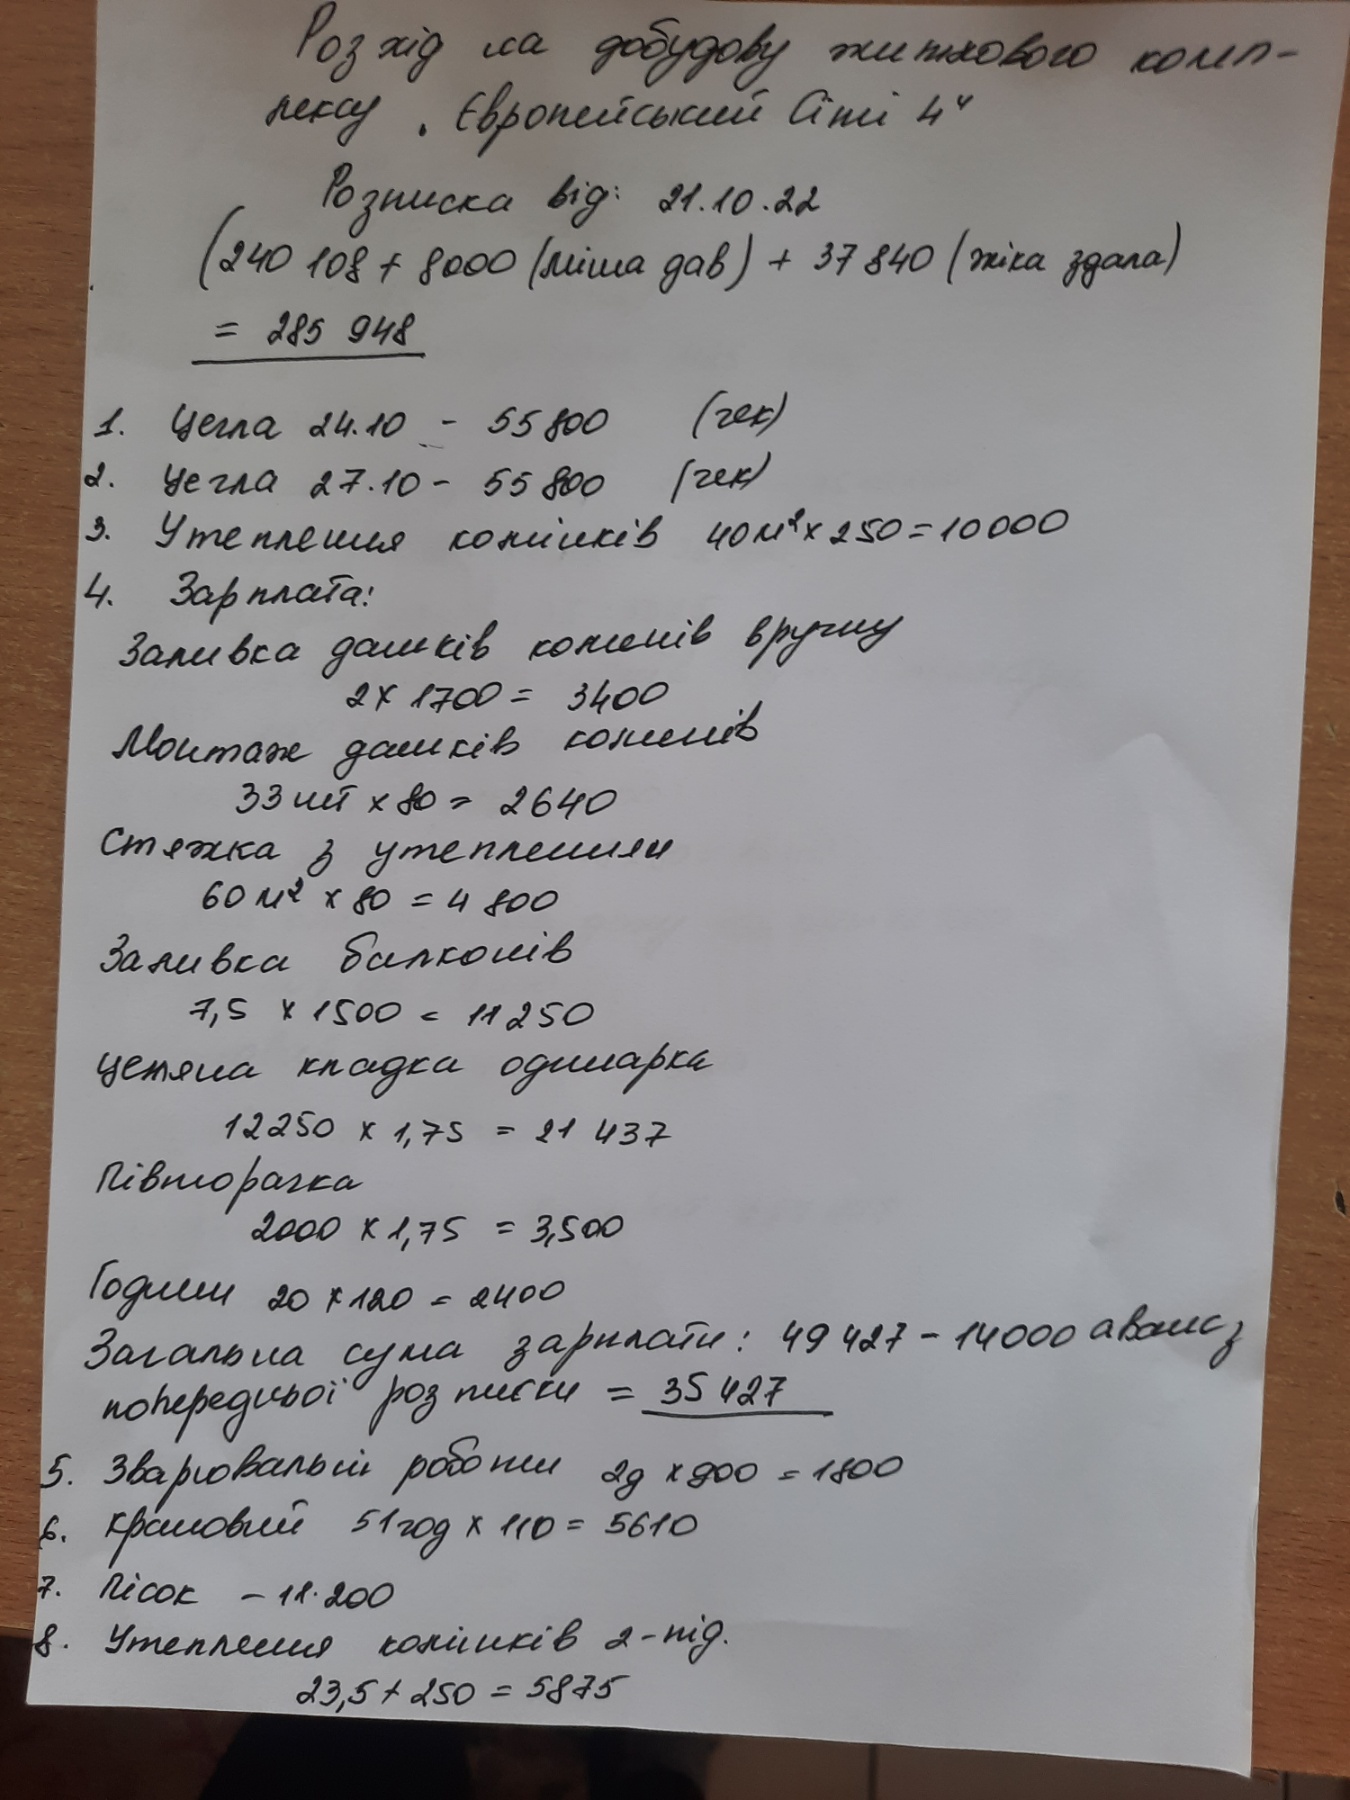 Розхід на добудову житлового комп-
лексу „Європейський Сіті 4"
Розписка від: 21.10.22
(240 108 + 8000 (міша дав) + 37 840 (жіка здала)
= 285 948
1. Цегла 24.10 - 55 800 (чек)
2. Цегла 27.10 - 55 800 (чек)
3. Утеплення комінків 40 м² x 250 = 10 000
4. Зарплата:
Заливка дашків коменів вручну
2 x 1700 = 3400
Монтаж дашків коменів
33 шт x 80 = 2640
Стяжка з утепленням
60 м² x 80 = 4 800
Заливка балконів
7,5 x 1500 = 11 250
Цегяна кладка одинарка
12250 x 1,75 = 21 437
Півторачка
2000 x 1,75 = 3,500
Години 20 x 120 = 2400
Загальна сума зарплати: 49 427 - 14 000 аванс з
попередньої розписки = 35 427
5. Зварювальні роботи 2д x 900 = 1800
6. Крановий 51 год x 110 = 5610
7. Пісок - 11.200
8. Утеплення комінків 2-під.
23,5 + 250 = 5875